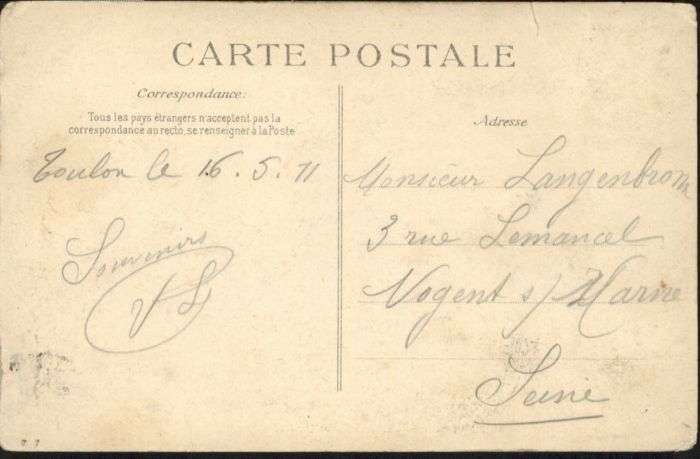 CARTE POSTALE
Correspondance:
Tous les pays étrangers n'acceptent pas la
correspondance au recto, se renseigner à la Poste
Toulon le 16.5.11
Souvenirs
Adresse
Monsieur
3 rue Lemancel
Nogent s/ Marne
Seine